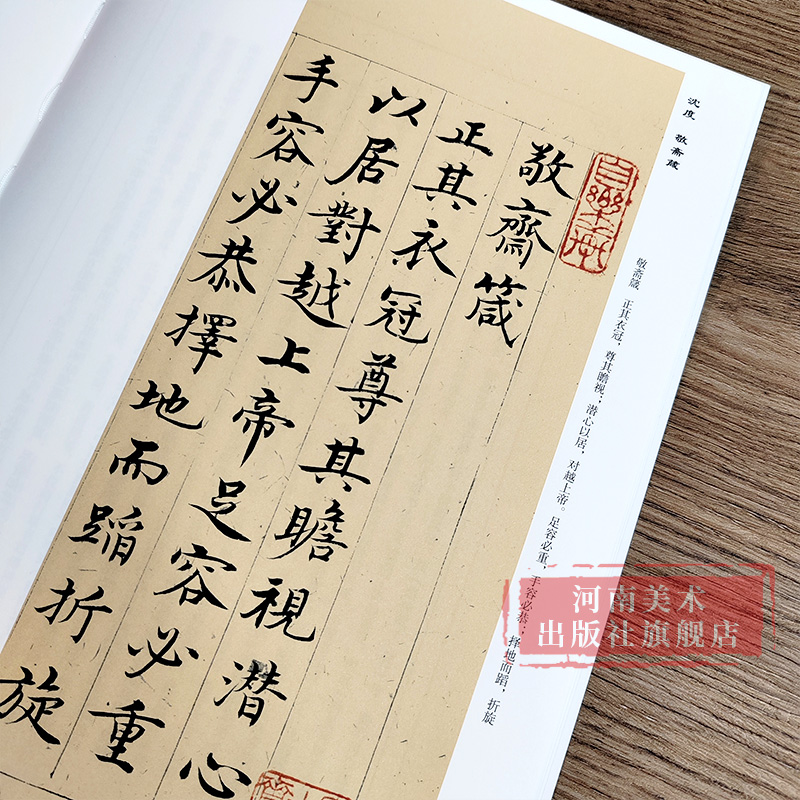 沈度 敬斋箴
敬齋箴
正其衣冠尊其瞻視潛心
以居對越上帝足容必重
手容必恭擇地而蹈折旋
敬斋箴 正其衣冠，尊其瞻视；潜心以居，对越上帝。足容必重，手容必恭；择地而蹈，折旋
河南美术
出版社旗舰店